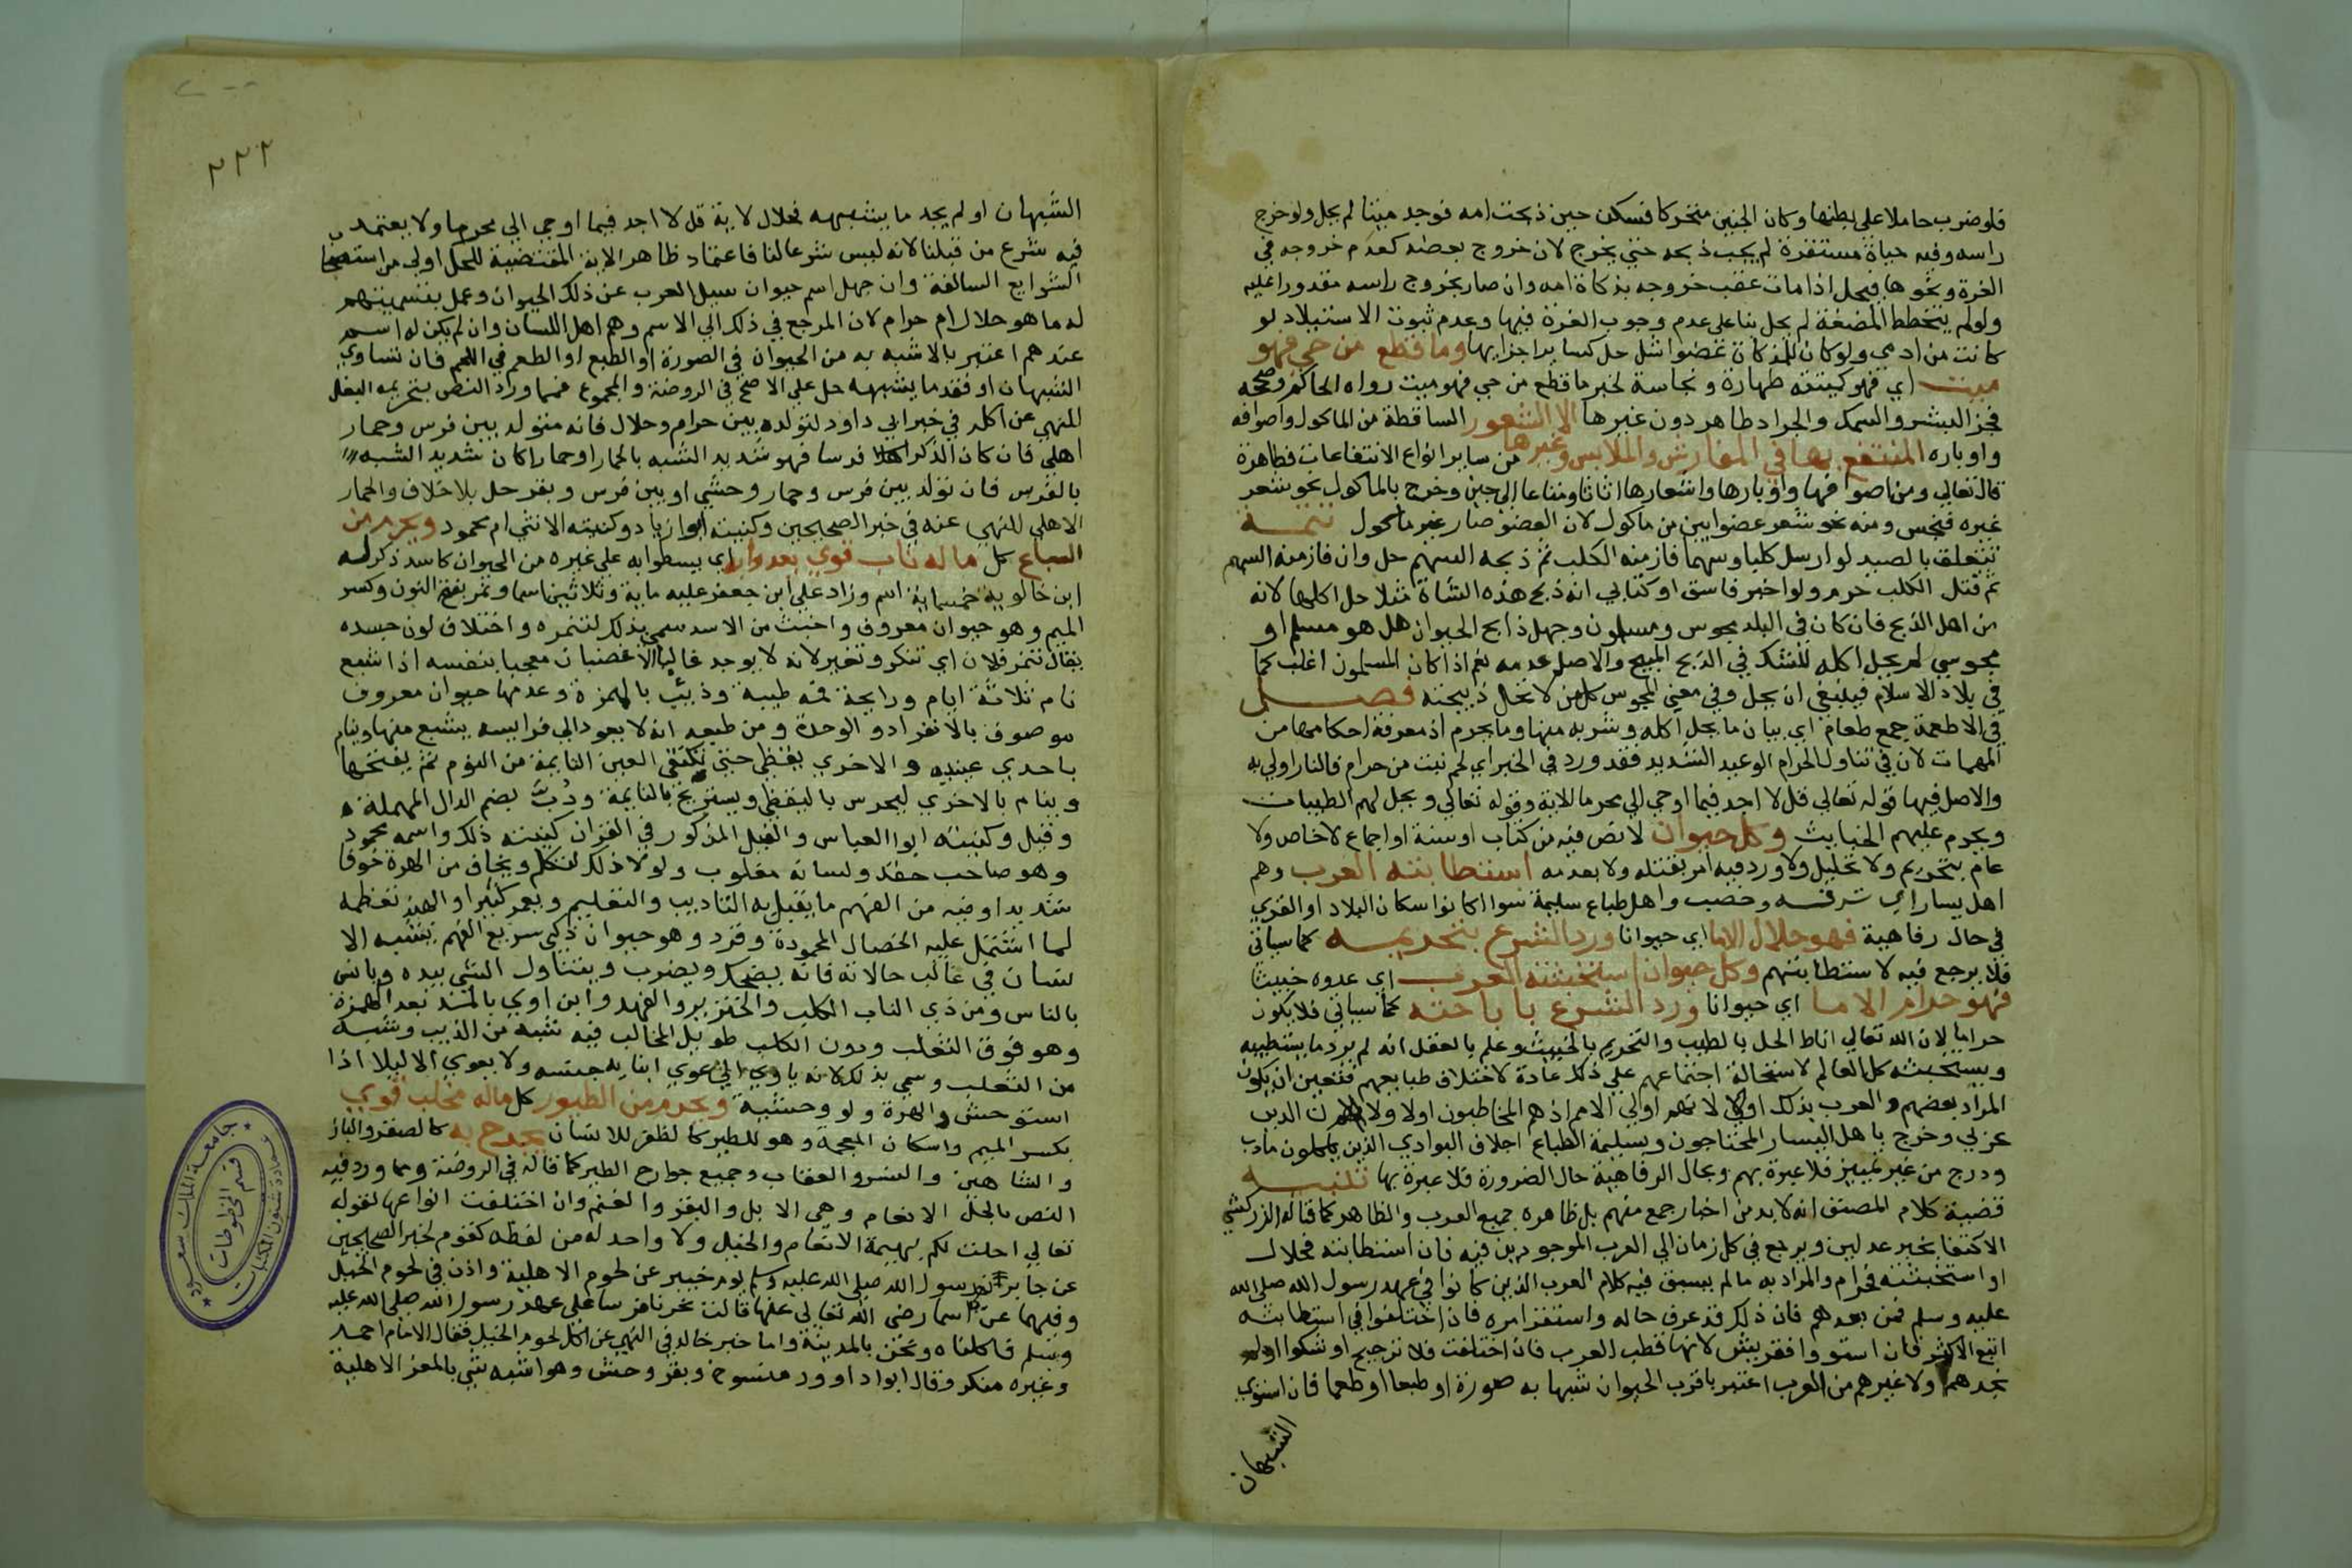 فلو ضرب حاملا على بطنها وكان الجنين متحركا فسكن حين ذبحت امه فوجد ميتا لم يحل ولو خرج
راسه وفيه حياة مستقرة لم يجب ذبحه حتي يخرج لان خروج بعضه كعدم خروجه في
الغرة ونحوها فيحل اذا مات عقب خروجه بذكاة امه وان صار بخروج راسه مقدورا عليه
ولو لم يتخطط المضغة لم يحل بنا على عدم وجوب الغرة فيها وعدم ثبوت الاستيلاد لو
كانت من ادمي ولو كان للمذكاة عضوا شل حل كساير اجزايها وما قطع من حي فهو
ميت اي فهو كميتته طهارة ونجاسة لخبر ما قطع من حي فهو ميت رواه الحاكم وصححه
فجز البشر والسمك والجراد طاهر دون غيرها الا الشعور الساقطة من الماكول واصوافه
واوباره المنتفع بها في المفارش والملابس وغيرها من ساير انواع الانتفاعات فطاهرة
قال تعالي ومن اصوافها واوبارها واشعارها اثاثا ومتاعا الي حين وخرج بالماكول نحو شعر
غيره فنجس ومنه نحو شعر عضو ابين من ماكول لان العضو صار غير ماكول تتمة
تتعلق بالصيد لو ارسل كلبا وسهما فازمنه الكلب ثم ذبحه السهم حل وان فازمنه السهم
ثم قتل الكلب حرم ولو اخبر فاسق او كتابي انه ذبح هذه الشاة مثلا حل اكلها لانه
من اهل الذبح فان كان في البلد مجوس ومسلمون وجهل ذابح الحيوان هل هو مسلم او
مجوسي لم يحل اكله للشك في الذبح المبيح والاصل عدمه نعم اذا كان المسلمون اغلب كما
في بلاد الاسلام فينبغي ان يحل وفي معني المجوس كل من لا تحل ذبيحته فصل
في الاطعمة جمع طعام اي بيان ما يحل اكله وشربه منها وما يحرم اذ معرفة احكامها من
المهمات لان في تناول الحرام الوعيد الشديد فقد ورد في الخبر اي لحم نبت من حرام فالنار اولي به
والاصل فيها قوله تعالي قل لا اجد فيما اوحي الي محرما للاية وقوله تعالي ويحل لهم الطيبات
ويحرم عليهم الخبايث وكل حيوان لا نص فيه من كتاب او سنة او اجماع لا خاص ولا
عام بتحريم ولا تحليل ولا ورد فيه امر بقتله ولا بعدمه استطابته العرب وهم
اهل يسار اي ثروة وخصب واهل طباع سليمة سوا اكانوا سكان البلاد او القري
في حال رفاهية فهو حلال الا ما اي حيوانا ورد الشرع بتحريمه كما سياتي
فلا يرجع فيه لاستطابتهم وكل حيوان استخبثته العرب اي عدوه خبيثا
فهو حرام الا ما اي حيوانا ورد الشرع باباحته كما سياتي فلا يكون
حراما لان الله تعالي اناط الحل بالطيب والتحريم بالخبيث وعلم بالعقل انه لم يرد ما يستطيبه
ويستخبثه كل العالم لاستحالة اجتماعهم على ذلك عادة لاختلاف طبايعهم فتعين ان يكون
المراد بعضهم والعرب بذلك اولي لانهم اولي الامم اذ هم المخاطبون اولا ولان الدين
عربي وخرج باهل اليسار المحتاجون وبسليمة الطباع اجلاف البوادي الذين ياكلون مادب
ودرج من غير تمييز فلا عبرة بهم وبحال الرفاهية حال الضرورة فلا عبرة بها تنبيه
قضية كلام المصنف انه لا بد من اخبار جمع منهم بل ظاهره جميع العرب والظاهر كما قاله الزركشي
الاكتفا بخبر عدلين ويرجع في كل زمان الي العرب الموجودين فيه فان استطابته فحلال
او استخبثته فحرام والمراد به ما لم يسبق فيه كلام العرب الذين كانوا في عهد رسول الله صلى الله
عليه وسلم فمن بعدهم فان ذلك قد عرف حاله واستقر امره فان اختلفوا في استطابته
اتبع الاكثر فان استووا فقريش لانها قطب العرب فان اختلفت فلا ترجيح او شكوا او لم
نجدهم ولا غيرهم من العرب اعتبر باقرب الحيوان شبها به صورة او طبعا او طعما فان استوي
الشبهان
٢٢٢
الشبهان او لم يجد ما يشبهه فحلال لاية قل لا اجد فيما اوحي الي محرما ولا يعتمد
فيه شرع من قبلنا لانه ليس شرعا لنا فاعتماد ظاهر الاية المقتضية للحل اولي من استصحاب
الشرايع السالفة وان جهل اسم حيوان سيل العرب عن ذلك الحيوان وعمل بتسميتهم
له ما هو حلال ام حرام لان المرجع في ذلك الي الاسم وهم اهل اللسان وان لم يكن له اسم
عندهم اعتبر بالاشبه به من الحيوان في الصورة او الطبع او الطعم في اللحم فان تساوي
الشبهان او فقد ما يشبهه حل على الاصح في الروضة والمجموع فمما ورد النص بتحريمه البغل
للنهي عن اكله في خبر ابي داود لتولده بين حرام وحلال فانه متولد بين فرس وحمار
اهلي فان كان الذكر فرسا فهو شديد الشبه بالحمار او حمارا كان شديد الشبه
بالفرس فان تولد بين فرس وحمار وحشي او بين فرس وبقر حل بلا خلاف والحمار
الاهلي للنهي عنه في خبر الصحيحين وكنيته ابو زياد وكنيته الانثي ام محمود ويحرم من
السباع كل ما له ناب قوي يعدوا به اي يسطوا به على غيره من الحيوان كاسد ذكر له
ابن خالويه خمسماية اسم وزاد علي ابن جعفر عليه ماية وثلاثين اسما ونمر بفتح النون وكسر
الميم وهو حيوان معروف واخبث من الاسد سمي بذلك لتنمره واختلاف لون جسده
يقال تنمر فلان اي تنكر وتغير لانه لا يوجد غالبا الا غضبان معجبا بنفسه اذا شبع
نام ثلاثة ايام ورايحة فمه طيبة وذيب بالهمزة وعدمها حيوان معروف
موصوف بالانفراد والوحدة ومن طبعه انه لا يعود الي فرايسه يشبع منها وينام
باحدي عينيه والاخري يقظي حتي تكتفي العين النايمة من النوم ثم يفتحها
وينام بالاخري ليحرس باليقظي ويستريح بالنايمة ودب بضم الدال المهملة
وفيل وكنيته ابوا العباس والفيل المذكور في القران كنيته ذلك واسمه محمود
وهو صاحب حقد ولسانه مقلوب ولولا ذلك لتكلم ويخاف من الهرة خوفا
شديدا وفيه من الفهم ما يقبل به التاديب والتعليم ويعمر كثيرا والهند تعظمه
لما اشتمل عليه الخصال المحمودة وقرد وهو حيوان ذكي سريع الفهم يشبه الا
نسان في غالب حالاته فانه يضحك ويضرب ويتناول الشي بيده ويانس
بالناس ومن ذي الناب الكلب والخنزير والفهد وابن اوي بالمد بعد الهمزة
وهو فوق الثعلب ودون الكلب طويل المخالب فيه شبه من الذيب وشبه
من الثعلب وسمي بذلك لانه ياوي الي عوي ابنا به جنسه ولا يعوي الا ليلا اذا
استوحش والهرة ولو وحشية ويحرم من الطيور كل ما له مخلب قوي
بكسر الميم واسكان المعجمة وهو للطير كالظفر للانسان يجرح به كالصقر والباز
والشاهين والنسر والعقاب وجميع جوارح الطير كما قاله في الروضة ومما ورد فيه
النص بالحل الانعام وهي الابل والبقر والغنم وان اختلفت انواعها لقوله
تعالي احلت لكم بهيمة الانعام والخيل ولا واحد له من لفظه كقوم لخبر الصحيحين
عن جابر رسول الله صلى الله عليه وسلم يوم خيبر عن لحوم الاهلية واذن في لحوم الخيل
وفيهما عن اسما رضي الله تعالي عنها قالت نحرنا فرسا على عهد رسول الله صلى الله عليه
وسلم فاكلناه ونحن بالمدينة واما خبر خالد في النهي عن اكل لحوم الخيل فقال الامام احمد
وغيره منكر وقال ابوا داوود منسوخ وبقر وحش وهو اشبه شي بالمعز الاهلية
جامعة الملك سعود
عمادة شئون المكتبات
قسم المخطوطات